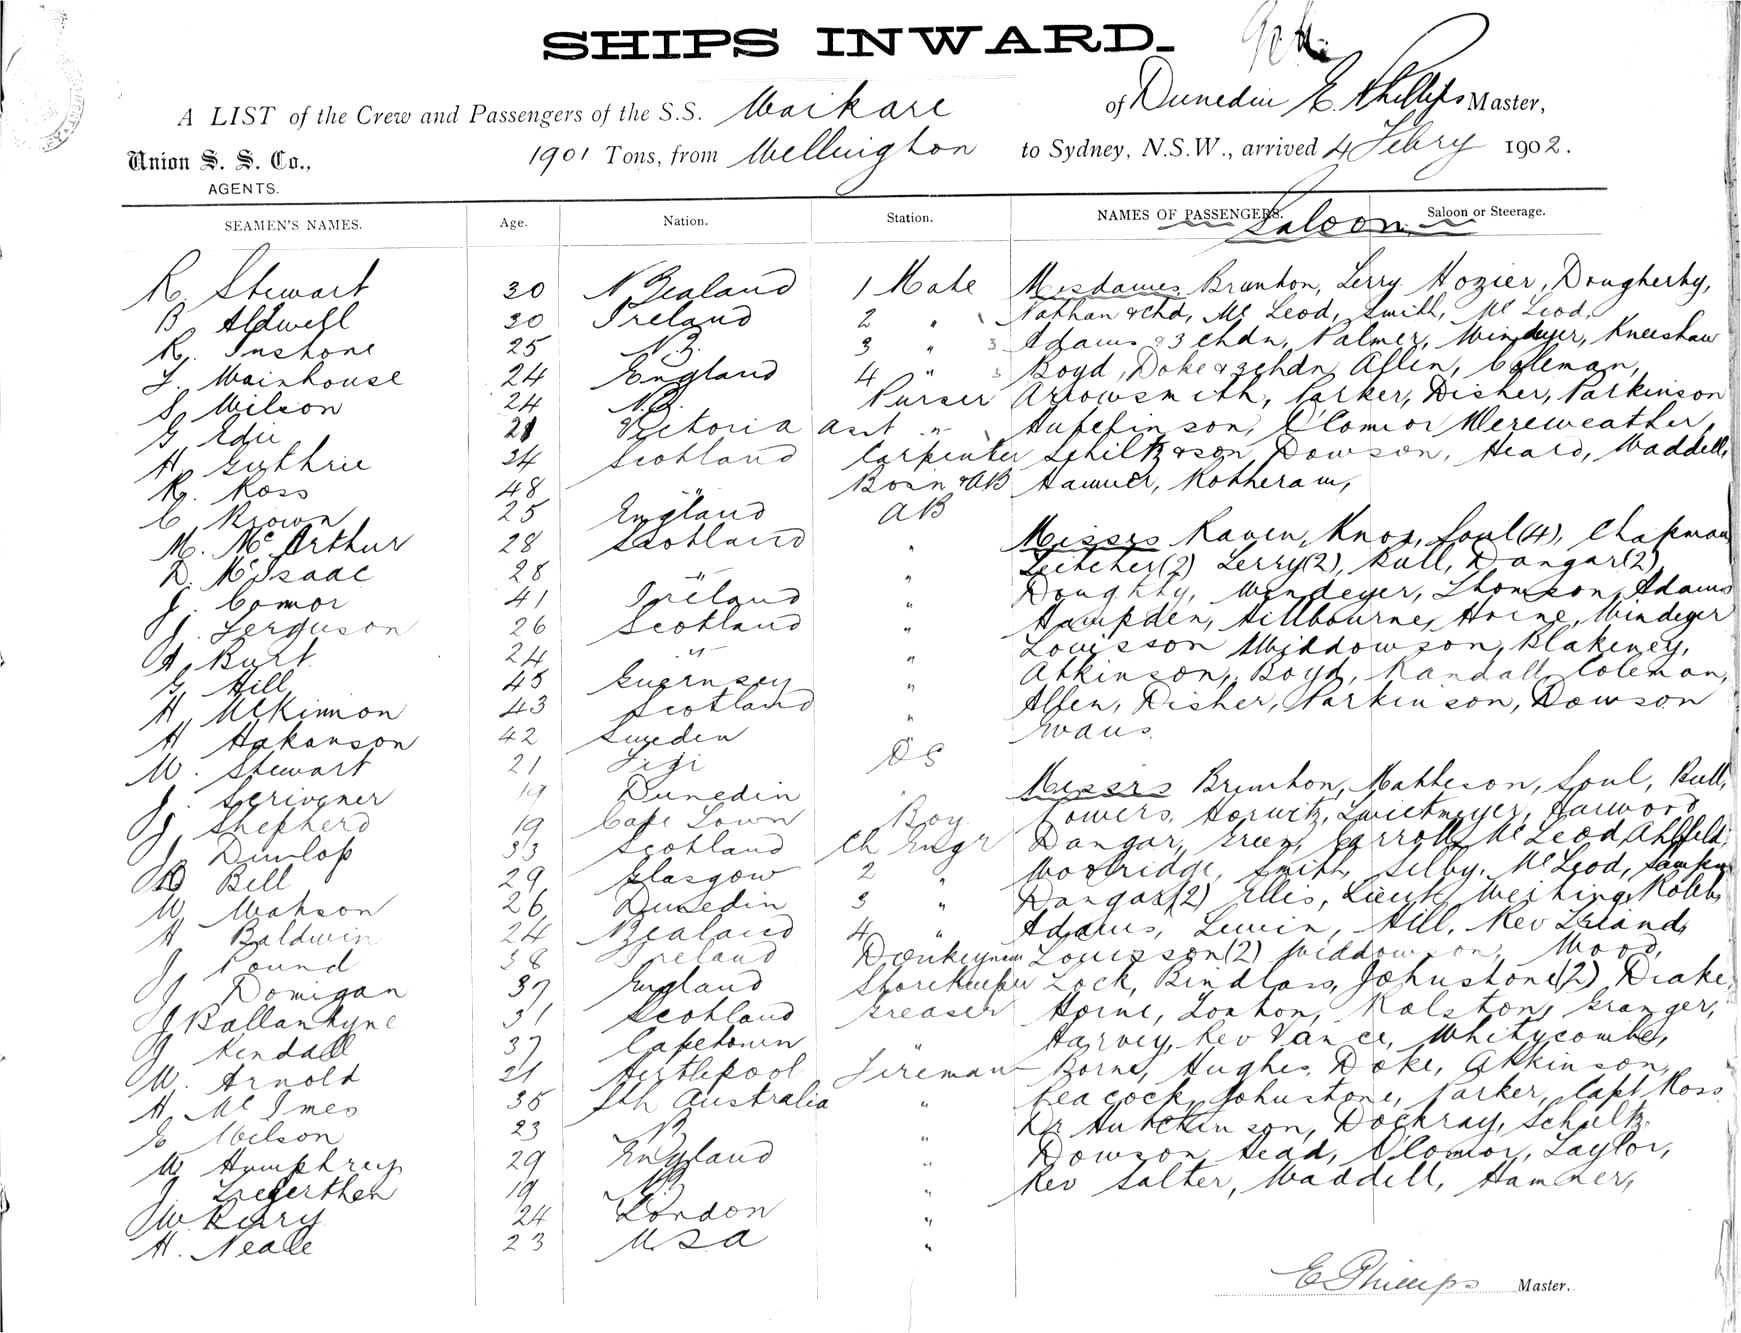 SHIPS INWARD.
A LIST of the Crew and Passengers of the S.S. Waikare of Dunedin E. Phillips Master,
Union S. S. Co., AGENTS. 1901 Tons, from Wellington to Sydney, N.S.W., arrived 4 Febry 1902.
SEAMEN'S NAMES. Age. Nation. Station. NAMES OF PASSENGERS. Saloon or Steerage.
Saloon
R. Stewart 30 N Zealand 1 Mate Mesdames Brunton, Terry Hozier, Dougherty,
B. Aldwell 30 Ireland 2 " Nathan & chd, Mc Leod, Smith, Mc Leod,
R. Inskone 25 N.Z. 3 " Adams & 3 chdn, Palmer, Windeyer, Kneeshaw
F. Wainhouse 24 England 4 " Boyd, Doke & 3 chdn Allen, Coleman,
S. Wilson 24 N.Z. Purser Arrowsmith, Parker, Disher, Parkinson
G. Edie 21 Victoria Asst " O'Connor Mereweather,
H. Guthrie 34 Scotland Carpenter Schiltz & son Dowson, Heard, Waddell,
R. Ross 48 " Bosn & AB Hammer, Rotheram,
C. Brown 25 England AB
M. McArthur 28 Scotland " Misses Raven, Knox, Soul (4), Chapman
D. McIsaac 28 " " Leitcher (2) Terry (2), Bull, Dangar (2),
J. Connor 41 Ireland " Doughty, Windeyer, Thomson, Adams
J. Ferguson 26 Scotland " Hampden, Hillbourne, Horne, Windeyer
A. Burt 24 " " Louisson Widdowson, Blakeney,
G. Hill 45 Guernsey " Atkinson, Boyd, Randall Coleman,
H. McKinnon 43 Scotland " Allen, Disher, Parkinson, Dowson
H. Hakanson 42 Sweden " Evans.
W. Stewart 21 Fiji OS
J. Scrivener 19 Dunedin Messrs Brunton, Matheson, Soul, Bull,
J. Shepherd 19 Cape Town Boy Towers, Horwitz, Zwietmeyer, Harwood
J. Dunlop 33 Scotland Ch Engr Dangar, Green, Carroll, McLeod, Ahlfeld,
D. Bell 29 Glasgow 2 " Woolridge, Smith, Selby, McLeod,
W. Watson 26 Dunedin 3 " Dangar (2) Ellis, Lieut Weihing, Robb,
H Baldwin 24 N Zealand 4 " Adams, Lewin, Hill, Rev Ireland,
J. Pound 38 Ireland Donkeyman Louisson (2) Widdowson, Wood,
J. Donigan 37 England Storekeeper Lock, Bindloss, Johnstone (2) Drake,
J Ballantyne 31 Scotland Greaser Horne, Lonton, Ralston, Granger,
J. Kendall 37 Capetown " Harvey, Rev Vance, Whitycombe,
W. Arnold 21 Hartlepool Fireman Borne, Hughes, Doke, Atkinson,
H. McInnes 35 Sth Australia " Peacock, Johnstone, Parker, Capt Ross
E. Wilson 23 NZ " Dr Hutchinson, Dockray, Schultz.
W. Humphrey 29 England " Dowson, Head, O'Connor, Taylor,
J. 19 NZ " Rev Salter, Waddell, Hammer,
W. Perry 24 London "
H. Neale 23 U.S.A "
E Phillips Master.